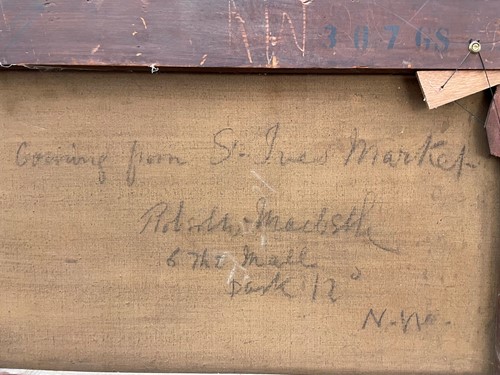 307GS
Coming from St. Ives Market
Robert W. Macbeth
6 The Mall
Park Rd
N.W.